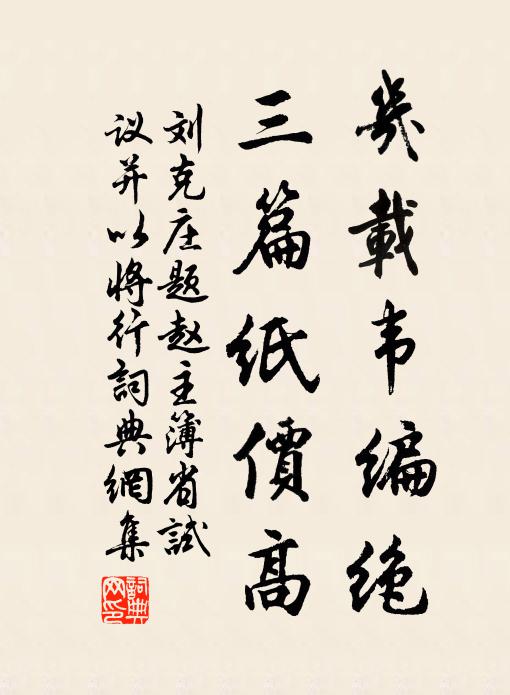 幾載韦编绝
三篇纸價高
刘克庄题赵主簿省試
议并以将行詞典網集
詞典网印